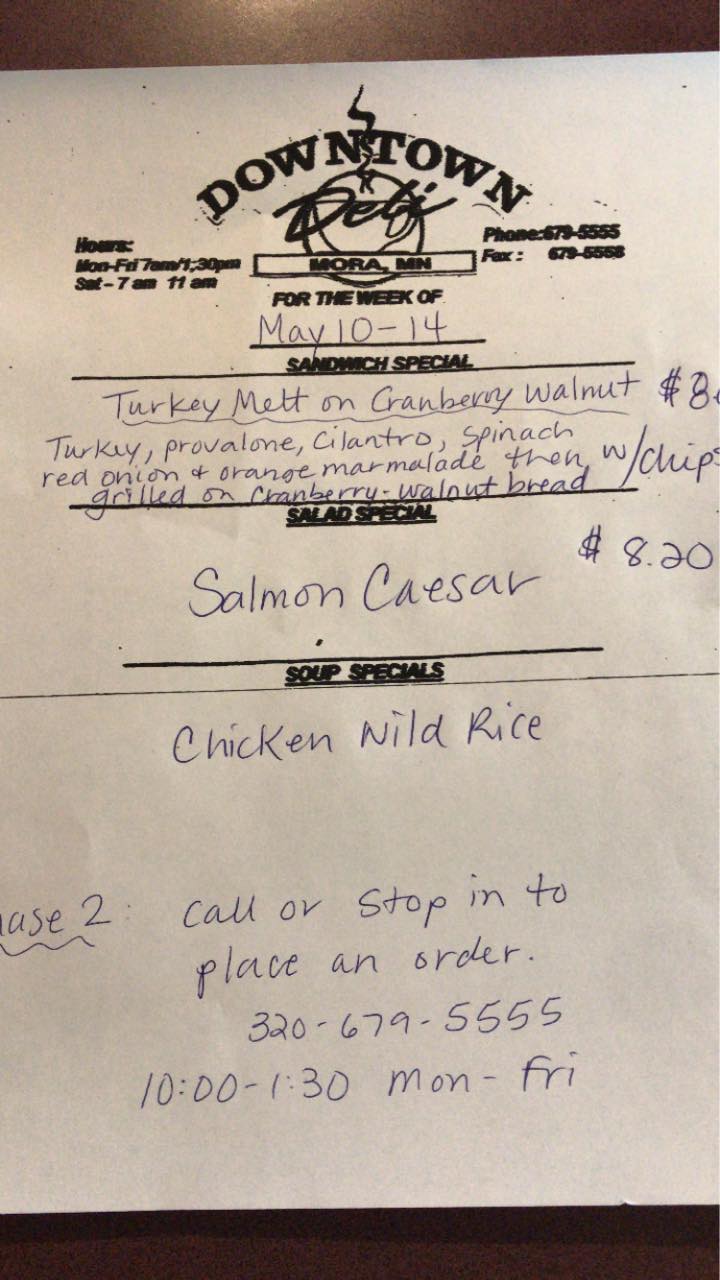 DOWNTOWN
Deli
MORA, MN
Hours:
Mon-Fri 7am/1;30pm
Sat - 7 am 11 am
Phone:679-5555
Fax : 679-5558
FOR THE WEEK OF
May 10-14
SANDWICH SPECIAL
Turkey Melt on Cranberry Walnut $8.
Turkey, provalone, Cilantro, Spinach
red onion + orange marmalade then w/chips
grilled on Cranberry-walnut bread
SALAD SPECIAL
$ 8.20
Salmon Caesar
SOUP SPECIALS
Chicken Wild Rice
ase 2: Call or Stop in to
place an order.
320-679-5555
10:00-1:30 Mon-Fri